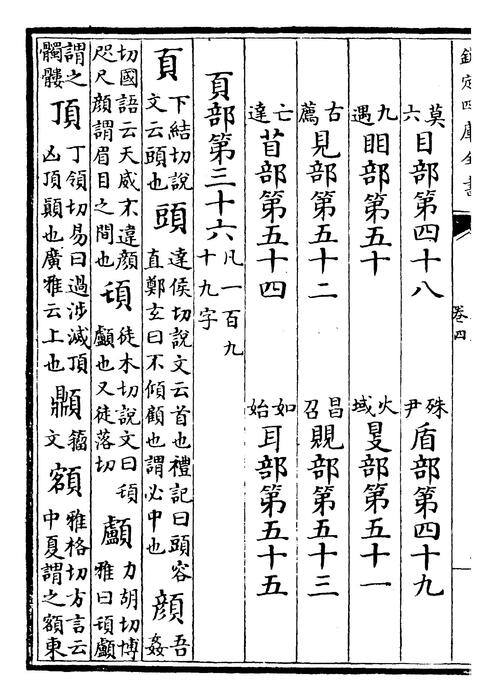 欽定四庫全書
卷四
莫六目部第四十八 殊尹盾部第四十九
九遇䀠部第五十 火域𥄎部第五十一
古薦見部第五十二 昌召覞部第五十三
亡達苜部第五十四 如始耳部第五十五
頁部第三十六凡一百九十九字
頁下結切說文云頭也頭達侯切說文云首也禮記曰頭容直鄭玄曰不傾顧也謂必中也顔吾姦
切國語云天威不違顔咫尺顔謂眉目之間也𩑒徒木切說文曰𩑒顱也又徒落切顱力胡切博雅曰𩑒顱
謂之髑髏頂丁領切易曰過涉滅頂凶頂顛也廣雅云上也𩕢籒文額雅格切方言云中夏謂之額東